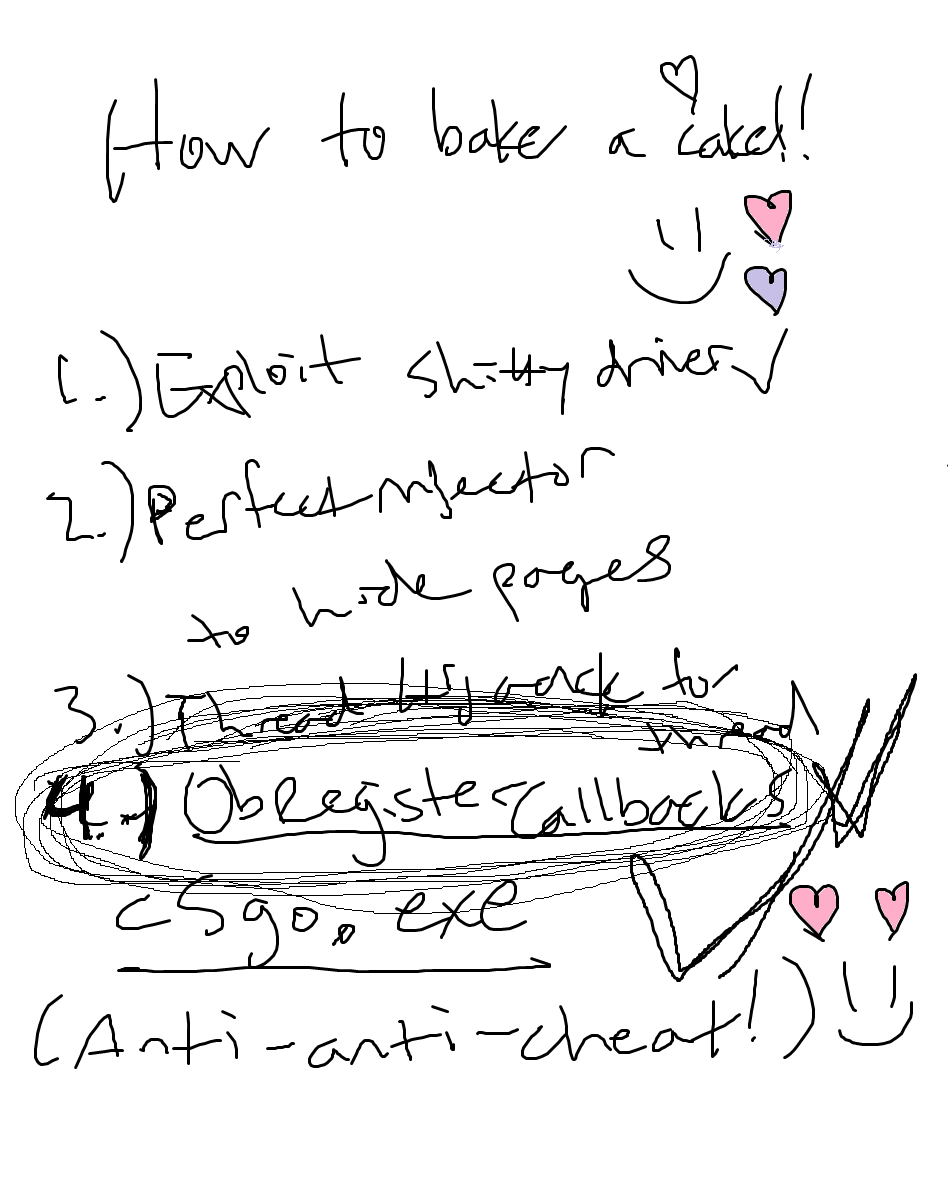 How to bake a cake!!
1.) Exploit shitty driver
2.) Perfect injector
to hide pages
3.) Thread hijack to
thread
4.) ObRegisterCallbacks
csgo.exe
(Anti-anti-cheat!)